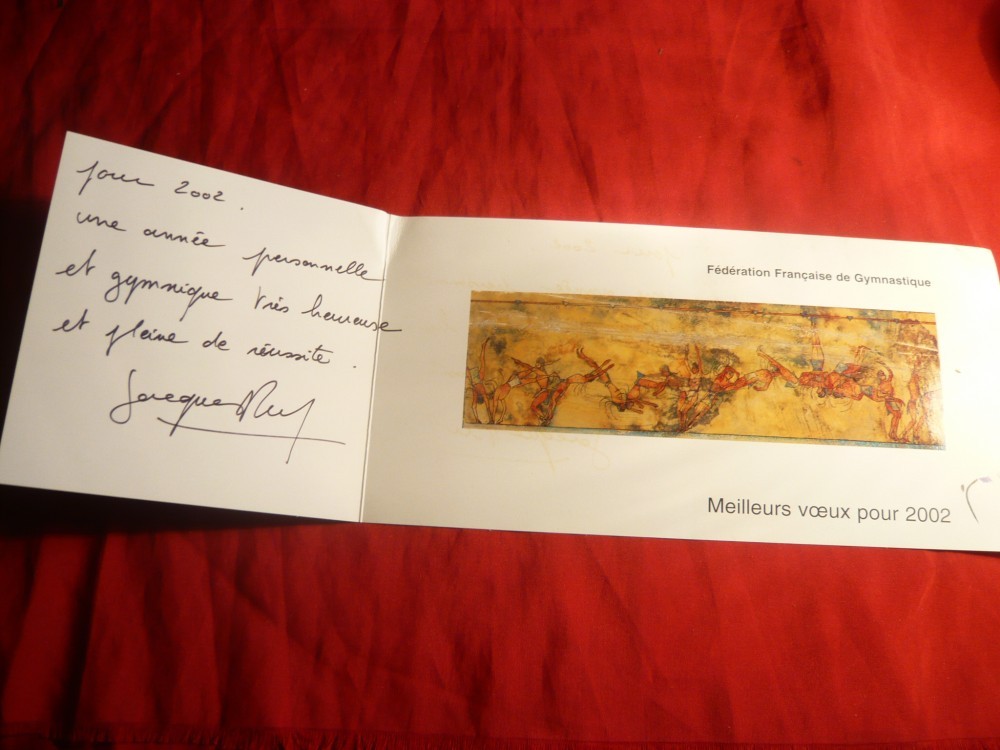 pour 2002.
une année personnelle
et gymnique très heureuse
et pleine de réussite.
Jacques Rey
Fédération Française de Gymnastique
Meilleurs vœux pour 2002